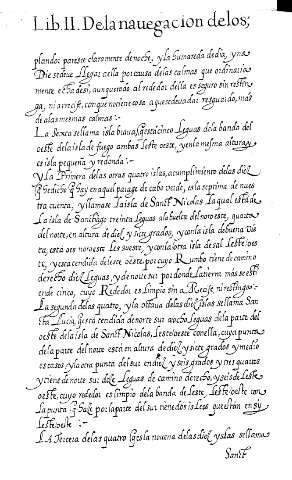 Lib. II. De la nauegacion delos;
plando: paresce claramente denoche, y la humareda dedia, y na
Die se atreue llegar cella por causa delas calmas que ordinaria
mente echo desi, aunque todo al rededor della es seguro sin restin
ga, ni arrecife, con que no tiene cosa a que se deua dar resguardo, mas
de alas mesmas calmas :-
La Sexta se llama isla braua, que esta cinco leguas dela banda del
oeste dela isla de fuego ambas leste oeste, y en la mesma altura, y
es isla pequeña y redonda :-
La Primera delas otras quatro islas, a cumplimiento delas diez
que ay en aquel paraje de cabo verde, es la septima de nues
tra cuenta, y llamase la isla de Sanct Nicolas. La qual esta de
la isla de Sanctiago treinta leguas ala buelta del noroeste, quarta
del norte, en altura de diez y siete grados, y con la isla de buena vis
ta, esta oes noroeste les sueste, y con la otra isla de sal leste oes
te, y esta tendida de leste oeste, por cuyo Rumbo tiene de camino
derecho diez leguas, y de norte sur por donde la tierra mas se esti
ende cinco, cuyo Rededor es limpio sin a Recife, ni restingas :-
La segunda delas quatro, y la ottaua delas diez islas se llama San
cta Lucia, que esta tendida de norte sur ocho leguas dela parte del
oeste dela isla de Sanct Nicolas, leste oeste con ella, cuya punta
dela parte del norte esta en altura de diez y siete grados y medio
escasos, y la otra punta del sur en diez y seis grados y tres quartos
y tiene de norte sur diez leguas de camino derecho, y seis de leste
oeste, cuyo rededor es limpio de la banda de leste, leste oeste con
la punta que haze por la parte del sur tiene dos isleos que estan en sy
leste oeste :-
La Tercera delas quatro que es la nouena delas diez yslas se llama
Sanct